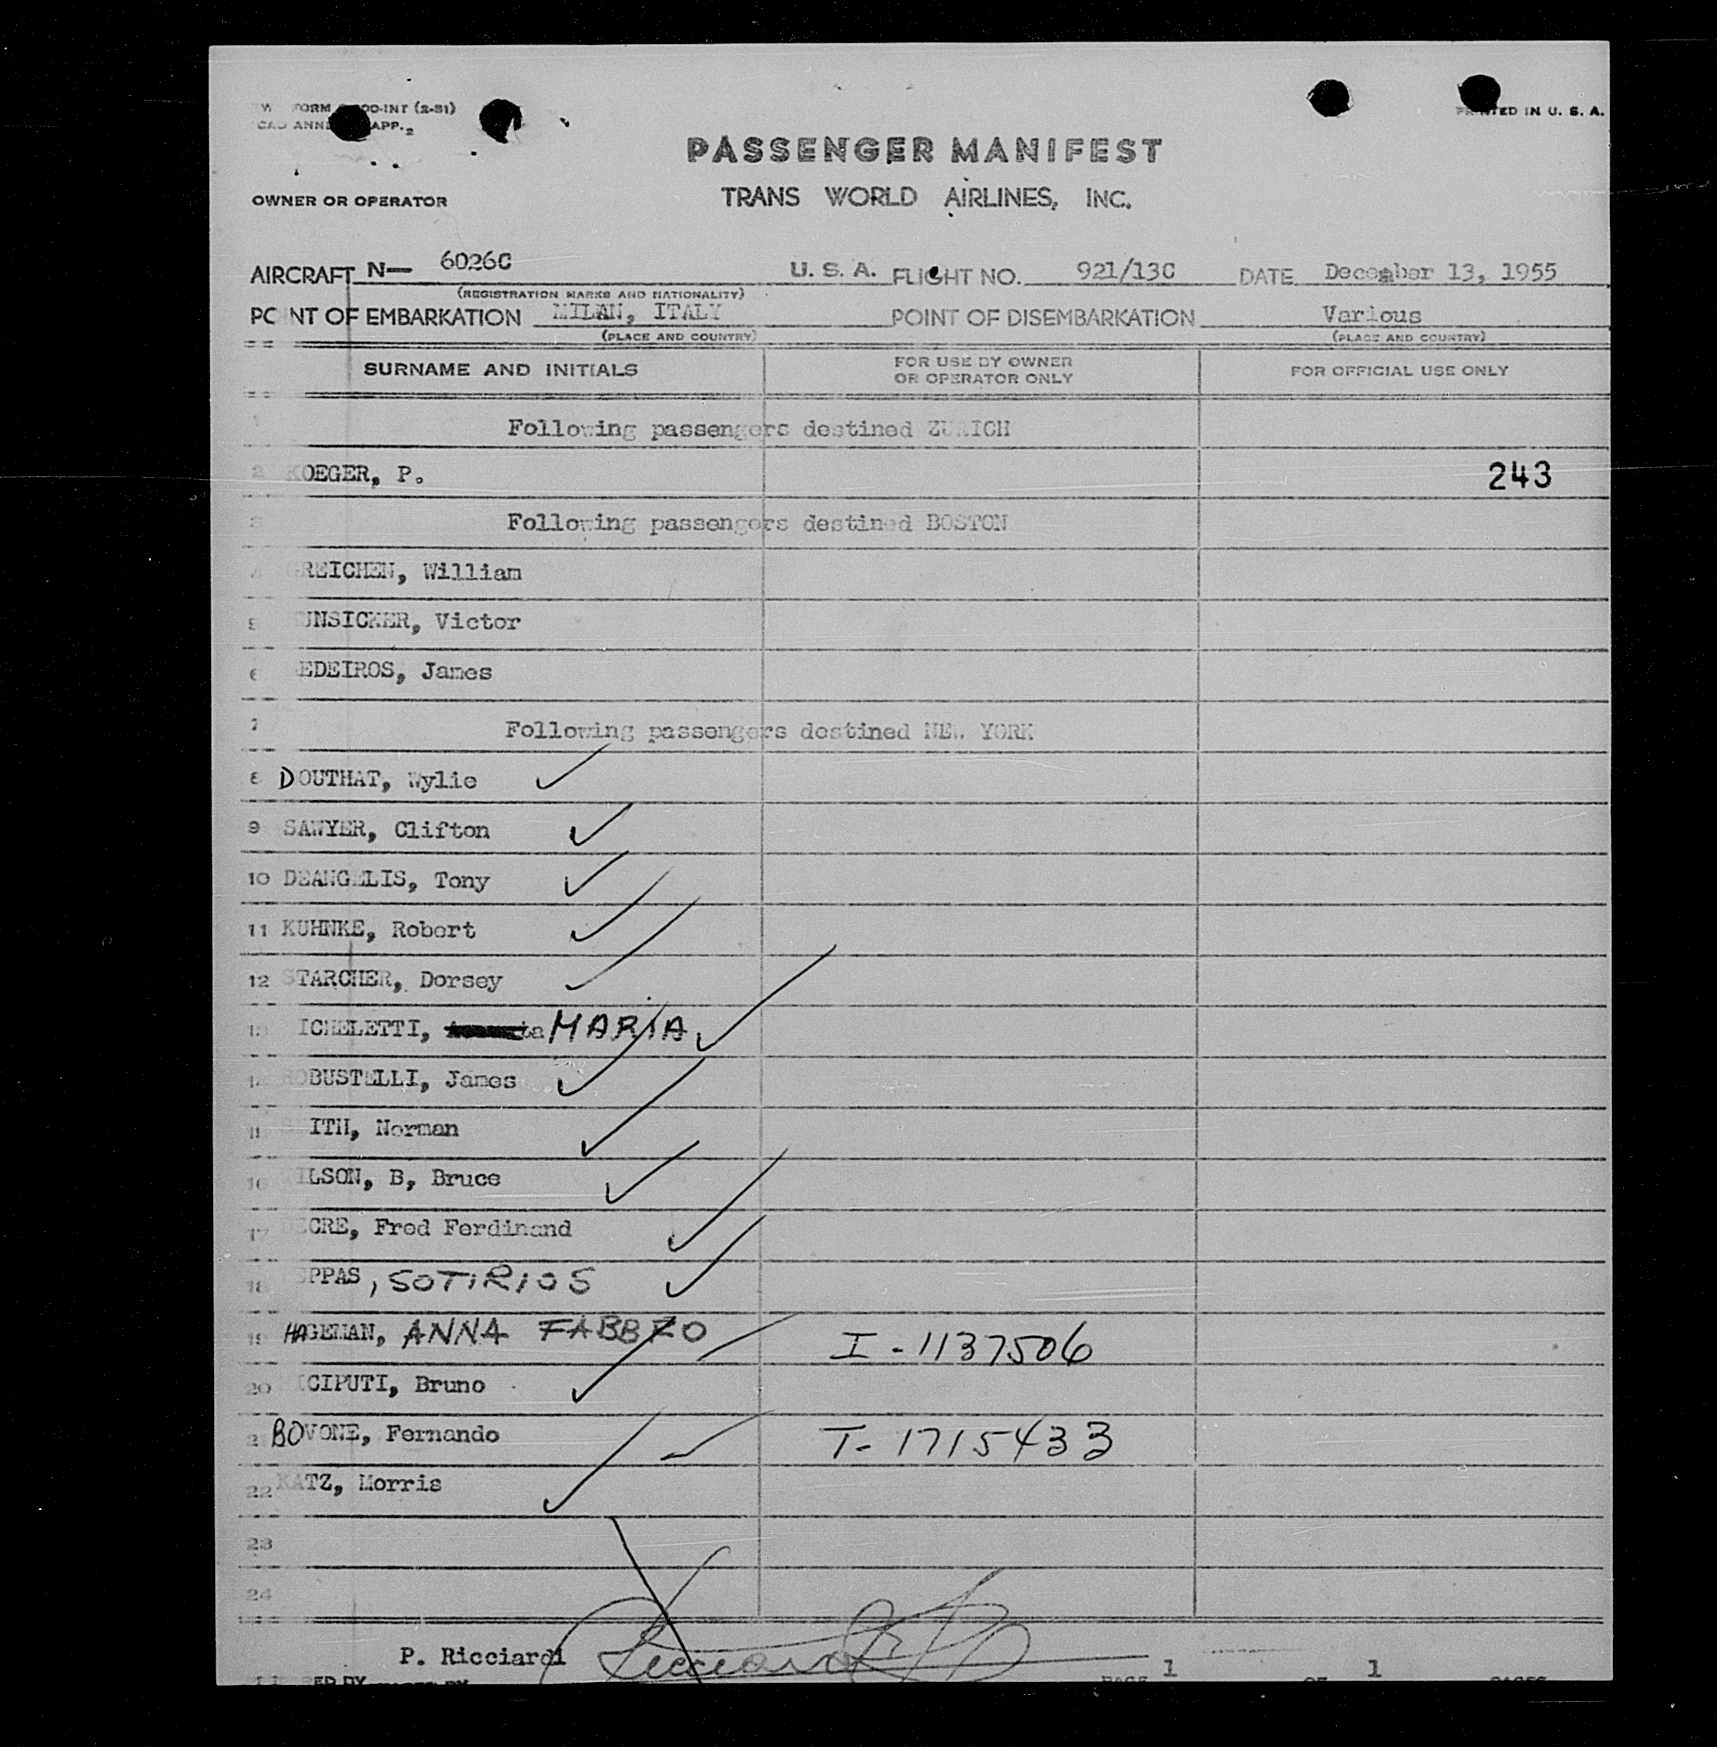 FORM
PRINTED IN U. S. A.
PASSENGER MANIFEST
OWNER OR OPERATOR TRANS WORLD AIRLINES, INC.
AIRCRAFT N— 6026C U. S. A. FLIGHT NO. 921/13C DATE December 13, 1955
(REGISTRATION MARKS AND NATIONALITY)
POINT OF EMBARKATION MILAN, ITALY POINT OF DISEMBARKATION Various
(PLACE AND COUNTRY) (PLACE AND COUNTRY)
SURNAME AND INITIALS FOR USE BY OWNER OR OPERATOR ONLY FOR OFFICIAL USE ONLY
Following passengers destined ZURICH
2 KOEGER, P. 243
3 Following passengers destined BOSTON
4 GREICHEN, William
5 UNSICKER, Victor
6 EDEIROS, James
7 Following passengers destined NEW YORK
8 DOUTHAT, Wylie
9 SAWYER, Clifton
10 DEANGELIS, Tony
11 KUHNKE, Robert
12 STARCHER, Dorsey
13 ICHELETTI, MARIA
14 ROBUSTELLI, James
15 ITH, Norman
16 ILSON, B, Bruce
17 ECRE, Fred Ferdinand
18 PPAS, SOTIRIOS
19 HAGEMAN, ANNA FABBRO I - 1137506
20 ICIPUTI, Bruno
21 BOVONE, Fernando T- 1715433
22 KATZ, Morris
23
24
P. Ricciardi
PAGE 1 OF 1 PAGES